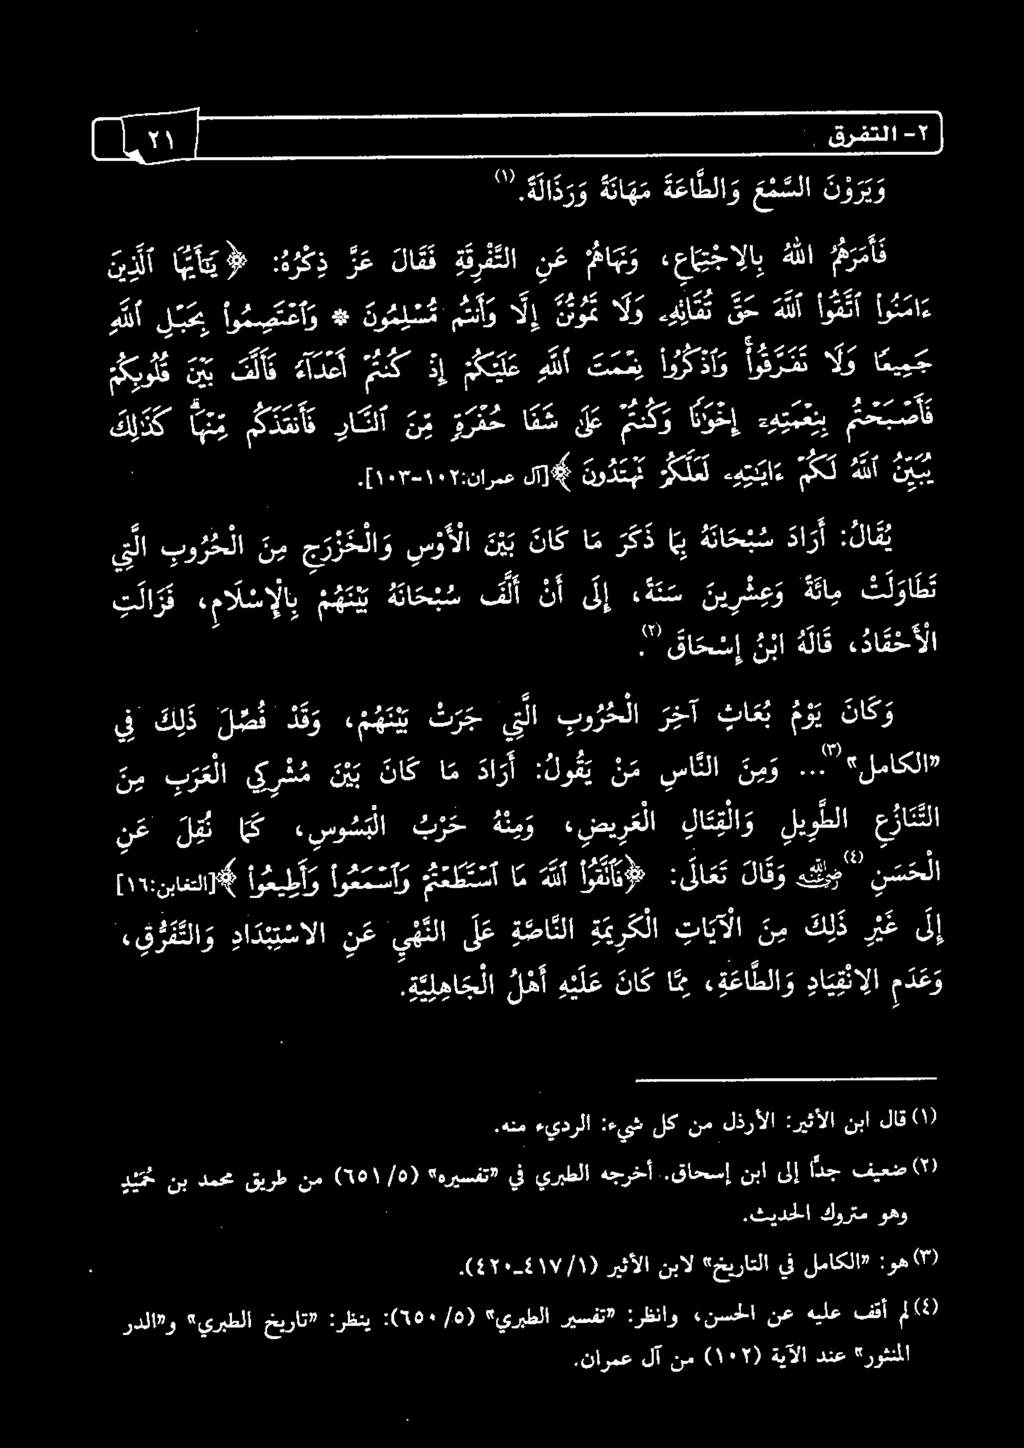 ٢- التفرق
٢١
وَيَرَوْنَ السَّمْعَ وَالطَّاعَةَ مَهَانَةً وَرَذَالَةً.(١)
فَأَمَرَهُمُ اللهُ بِالِاجْتِمَاعِ، وَنَهَاهُمْ عَنِ التَّفْرِقَةِ فَقَالَ عَزَّ ذِكْرُهُ: ﴿يَٰٓأَيُّهَا ٱلَّذِينَ
ءَامَنُوا۟ ٱتَّقُوا۟ ٱللَّهَ حَقَّ تُقَاتِهِۦ وَلَا تَمُوتُنَّ إِلَّا وَأَنتُم مُّسْلِمُونَ * وَٱعْتَصِمُوا۟ بِحَبْلِ ٱللَّهِ
جَمِيعًا وَلَا تَفَرَّقُوا۟ۚ وَٱذْكُرُوا۟ نِعْمَتَ ٱللَّهِ عَلَيْكُمْ إِذْ كُنتُمْ أَعْدَآءً فَأَلَّفَ بَيْنَ قُلُوبِكُمْ
فَأَصْبَحْتُم بِنِعْمَتِهِۦٓ إِخْوَٰنًا وَكُنتُمْ عَلَىٰ شَفَا حُفْرَةٍ مِّنَ ٱلنَّارِ فَأَنقَذَكُم مِّنْهَاۗ كَذَٰلِكَ
يُبَيِّنُ ٱللَّهُ لَكُمْ ءَايَٰتِهِۦ لَعَلَّكُمْ تَهْتَدُونَ﴾[آل عمران:١٠٢-١٠٣].
يُقَالُ: أَرَادَ سُبْحَانَهُ بِمَا ذَكَرَ مَا كَانَ بَيْنَ الْأَوْسِ وَالْخَزْرَجِ مِنَ الْحُرُوبِ الَّتِي
تَطَاوَلَتْ مِائَةً وَعِشْرِينَ سَنَةً، إِلَى أَنْ أَلَّفَ سُبْحَانَهُ بَيْنَهُمْ بِالْإِسْلَامِ، فَزَالَتِ
الْأَحْقَادُ، قَالَهُ ابْنُ إِسْحَاقَ(٢).
وَكَانَ يَوْمُ بُعَاثٍ آخِرَ الْحُرُوبِ الَّتِي جَرَتْ بَيْنَهُمْ، وَقَدْ فُصِّلَ ذَلِكَ فِي
«الكامل»(٣)... وَمِنَ النَّاسِ مَنْ يَقُولُ: أَرَادَ مَا كَانَ بَيْنَ مُشْرِكِي الْعَرَبِ مِنَ
التَّنَازُعِ الطَّوِيلِ وَالْقِتَالِ الْعَرِيضِ، وَمِنْهُ حَرْبُ الْبَسُوسِ، كَمَا نُقِلَ عَنِ
الْحَسَنِ(٤) رضي الله عنه وَقَالَ تَعَالَى: ﴿فَٱتَّقُوا۟ ٱللَّهَ مَا ٱسْتَطَعْتُمْ وَٱسْمَعُوا۟ وَأَطِيعُوا۟﴾[التغابن:١٦]
إِلَى غَيْرِ ذَلِكَ مِنَ الْآيَاتِ الْكَرِيمَةِ النَّاصَّةِ عَلَى النَّهْيِ عَنِ الاسْتِبْدَادِ وَالتَّفَرُّقِ،
وَعَدَمِ الِانْقِيَادِ وَالطَّاعَةِ، مِمَّا كَانَ عَلَيْهِ أَهْلُ الْجَاهِلِيَّةِ.
(١) قال ابن الأثير: الأرذل من كل شيء: الرديء منه.
(٢) ضعيف جداً إلى ابن إسحاق. أخرجه الطبري في «تفسيره» (٥/ ٦٥١) من طريق محمد بن حُمَيْدٍ
وهو متروك الحديث.
(٣) هو: «الكامل في التاريخ» لابن الأثير (١/ ٤١٧_٤٢٠).
(٤) لم أقف عليه عن الحسن، وانظر: «تفسير الطبري» (٥/ ٦٥٠): ينظر: «تاريخ الطبري» و«الدر
المنثور» عند الآية (١٠٢) من آل عمران.